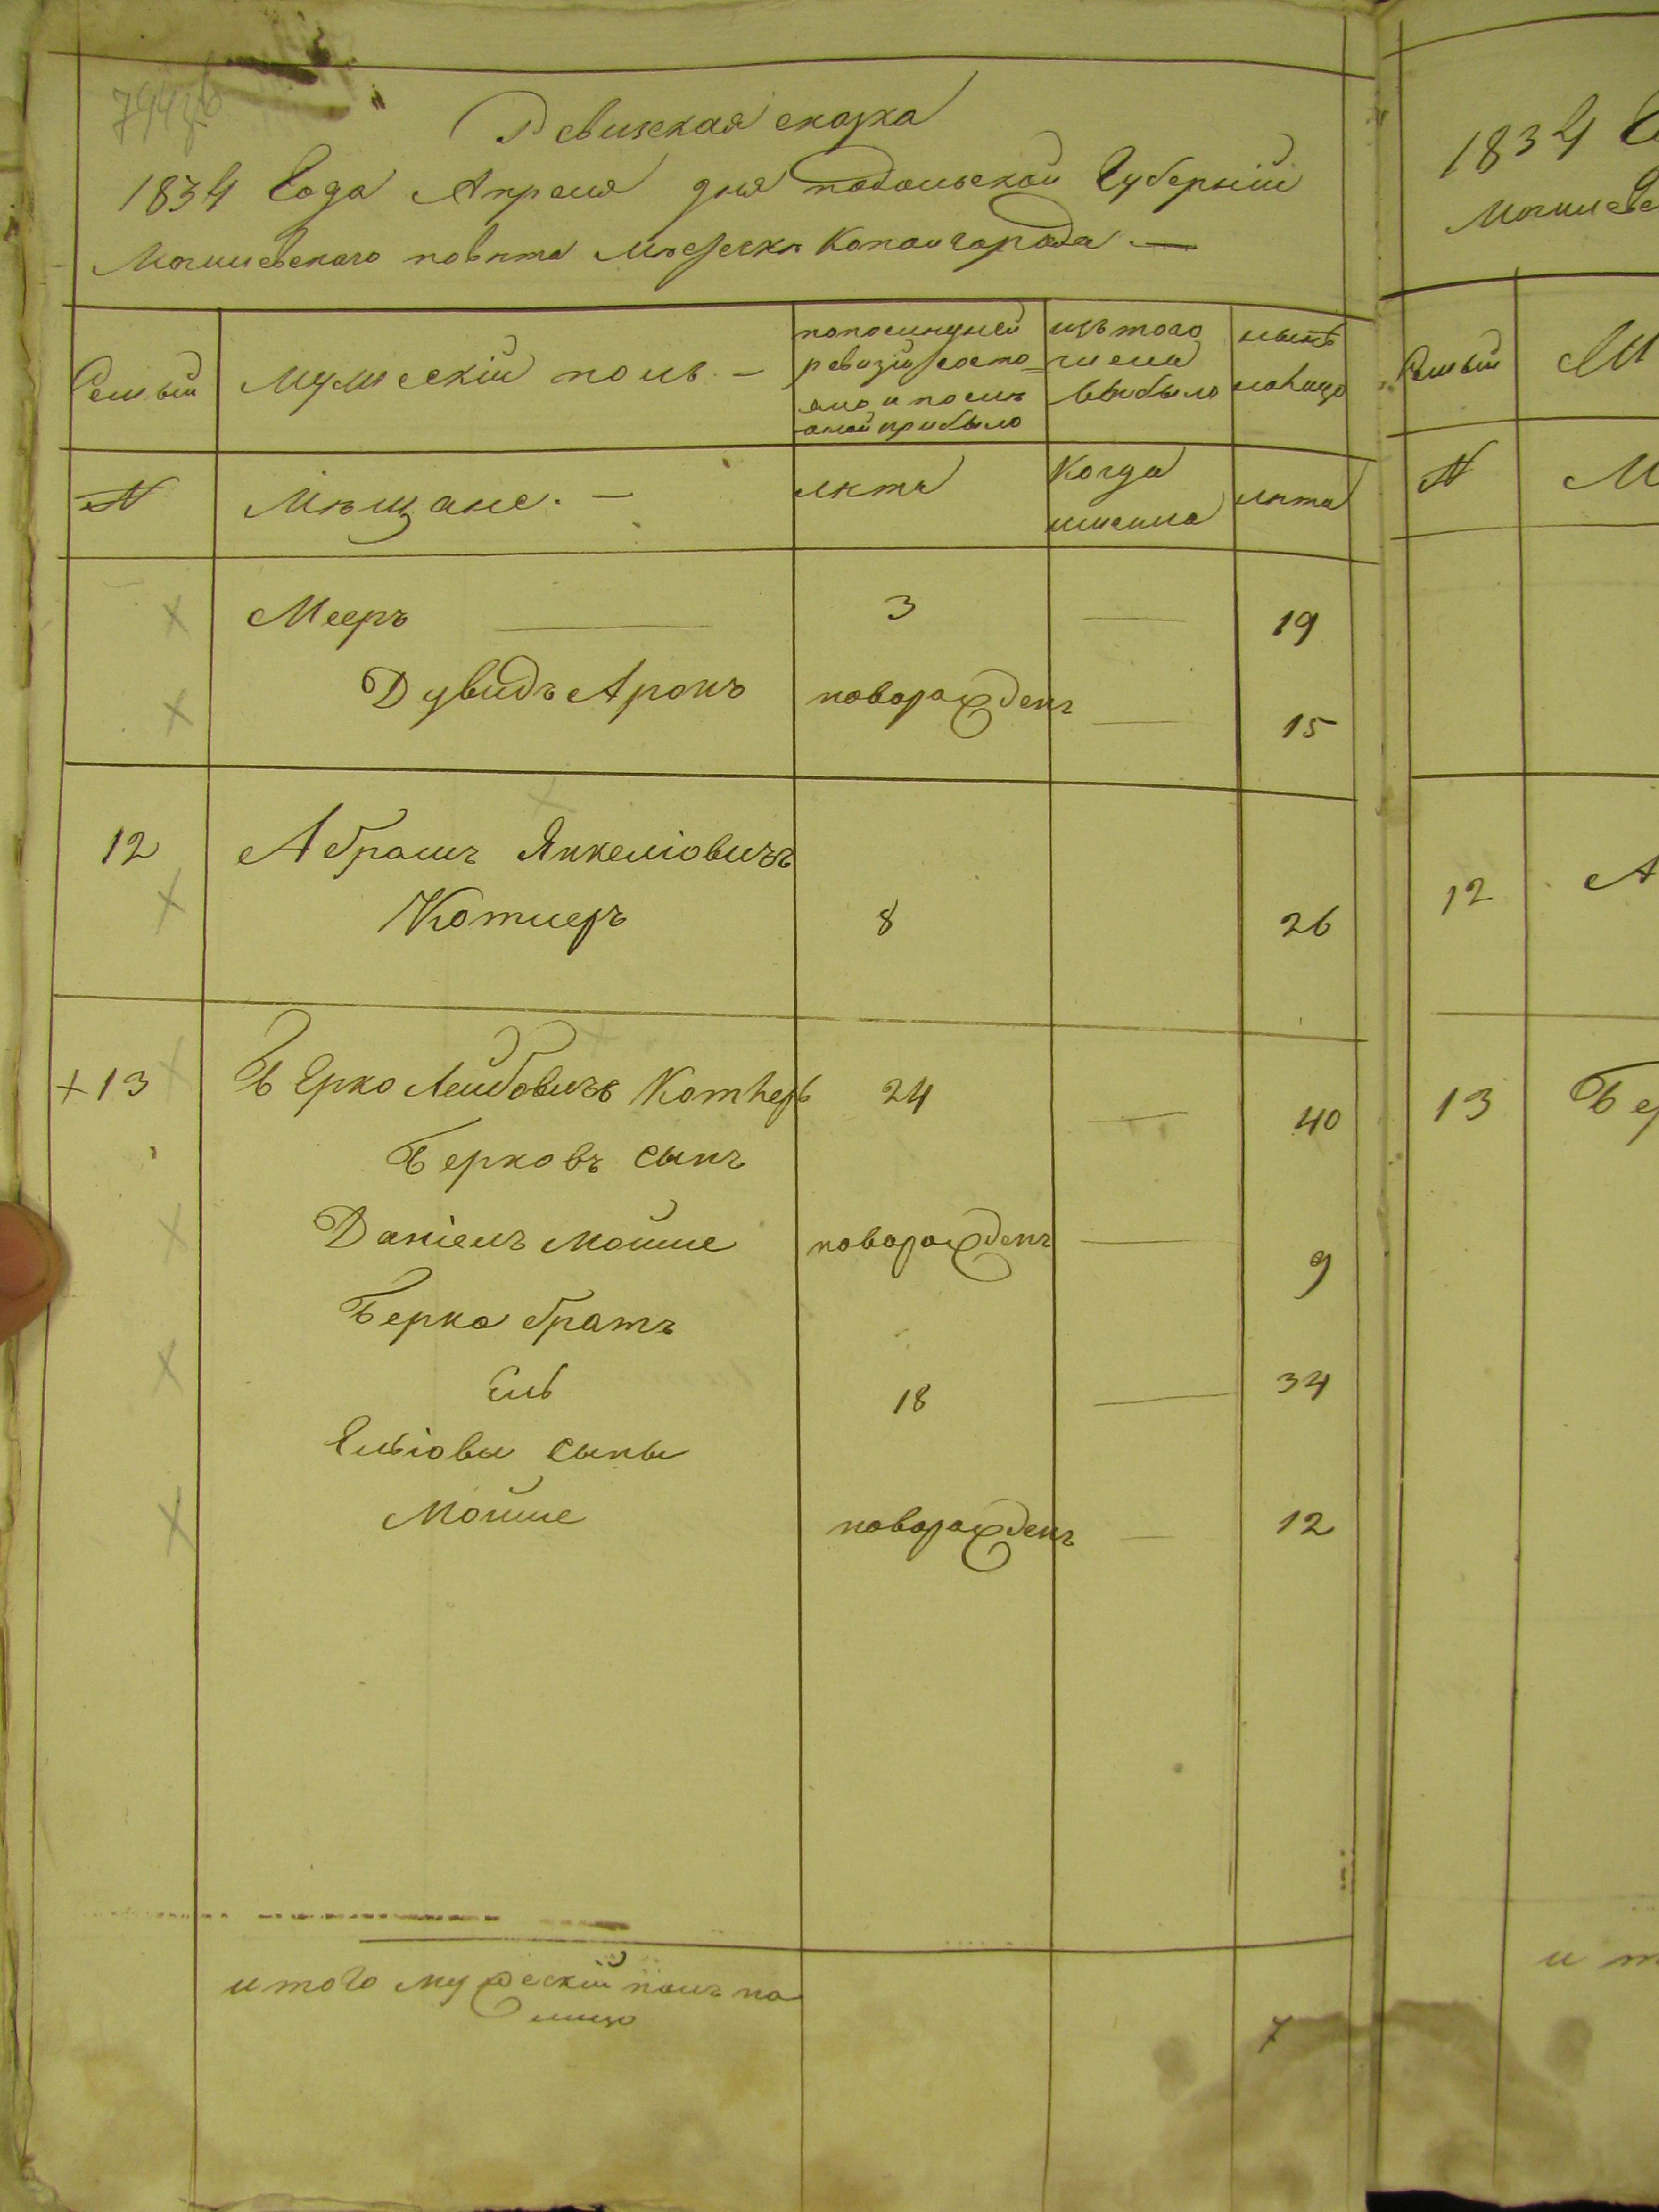 Ревизская сказка
1834 Года Апреля дня подольской Губерніи
Могилевскаго повѣта Мѣстечка Копайгорода —
Семьи
Мужескій полъ. —
попоследней
ревизіи состо-
яло и послѣ
оной прибыло
изъ того
числа
выбыло
нынѣ
налицо
N
Мѣщане. —
лѣтъ
Когда
имянно
лѣта
Мееръ — 3 — 19
Дувидъ Аронъ новорожденъ — 15
12 Абрамъ Янкеліовичъ
Котлеръ 8 26
+ 13 Берко Лейбовичъ Котлеръ 24 — 40
Берковъ сынъ
Даніелъ Мошше новорожденъ — 9
Берка братъ
Ель 18 — 34
Ельіовы сыны
Мошше новорожденъ — 12
итого мужескій полъ на
лицо
7
1834
Семьи
N
М
12 А
13 Бер